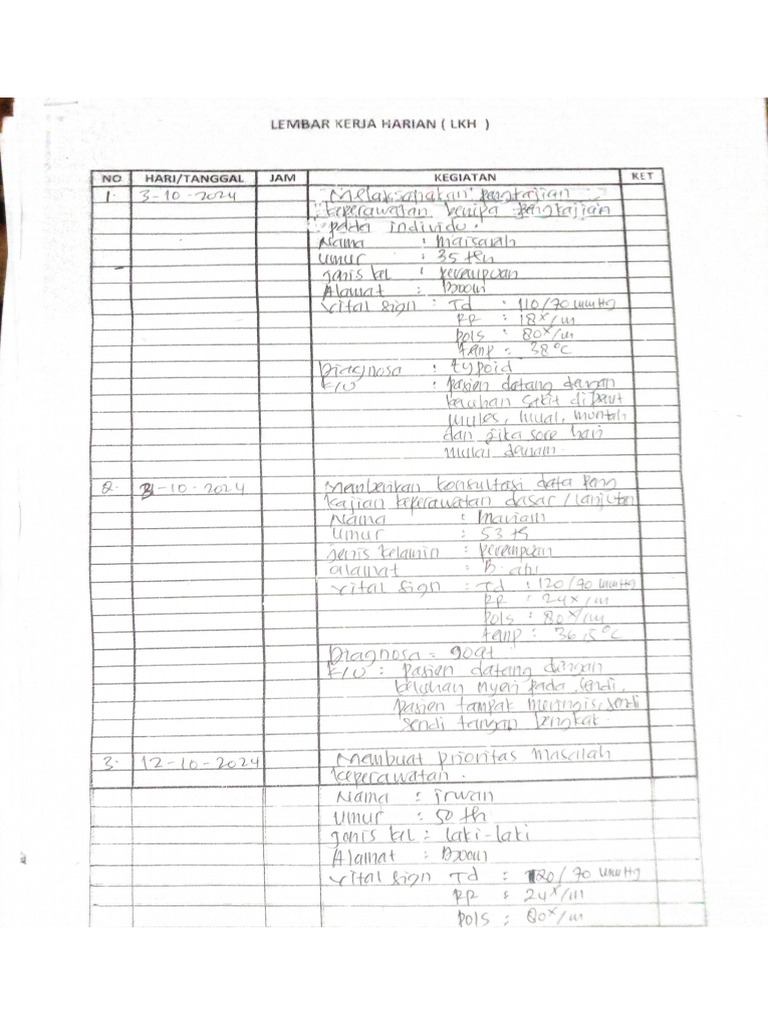 LEMBAR KERJA HARIAN ( LKH )
NO HARI/TANGGAL JAM KEGIATAN KET
1. 3-10-2024 Melaksanakan pengkajian
keperawatan berupa pengkajian
pada individu.
Nama : Maisarah
Umur : 35 th
Jenis kel : perempuan
Alamat : Boom
Vital Sign : Td : 110/70 mmHg
RR : 18x/m
Pols : 80x/m
temp : 38°C
Diagnosa : typoid
K/U : Pasien datang dengan
keluhan sakit diperut
mules, mual, muntah
dan jika sore hari
mulai demam.
2. 3-10-2024 Memberikan konsultasi data peng
kajian keperawatan dasar/lanjutan
Nama : Mariam
Umur : 53 th
Jenis kelamin : perempuan
alamat : B.
Vital Sign : Td : 120/70 mmHg
RR : 24x/m
Pols : 80x/m
temp : 36,5°C
Diagnosa = gout
K/U : Pasien datang dengan
keluhan nyeri pada sendi,
pasien tampak meringis, sendi
sendi tangan bengkak.
3. 12-10-2024 Membuat prioritas masalah
keperawatan.
Nama : irwan
Umur : 50 th
Jenis kel : laki-laki
Alamat : Boom
Vital Sign Td : 120/70 mmHg
RR : 24x/m
Pols : 80x/m